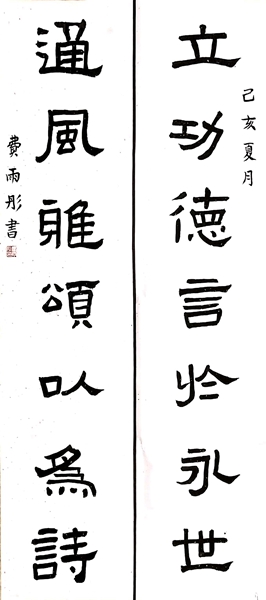 己亥夏月
立功德言於永世
通風雅頌以為詩
費雨彤書